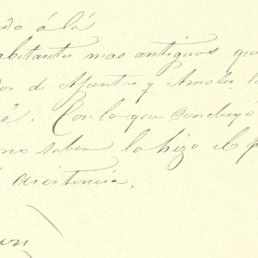 do á la
abitantes mas antiguos que
dor de Apuntes y
é". Con lo que concluyó
no saber lo hizo el p
asistencia.